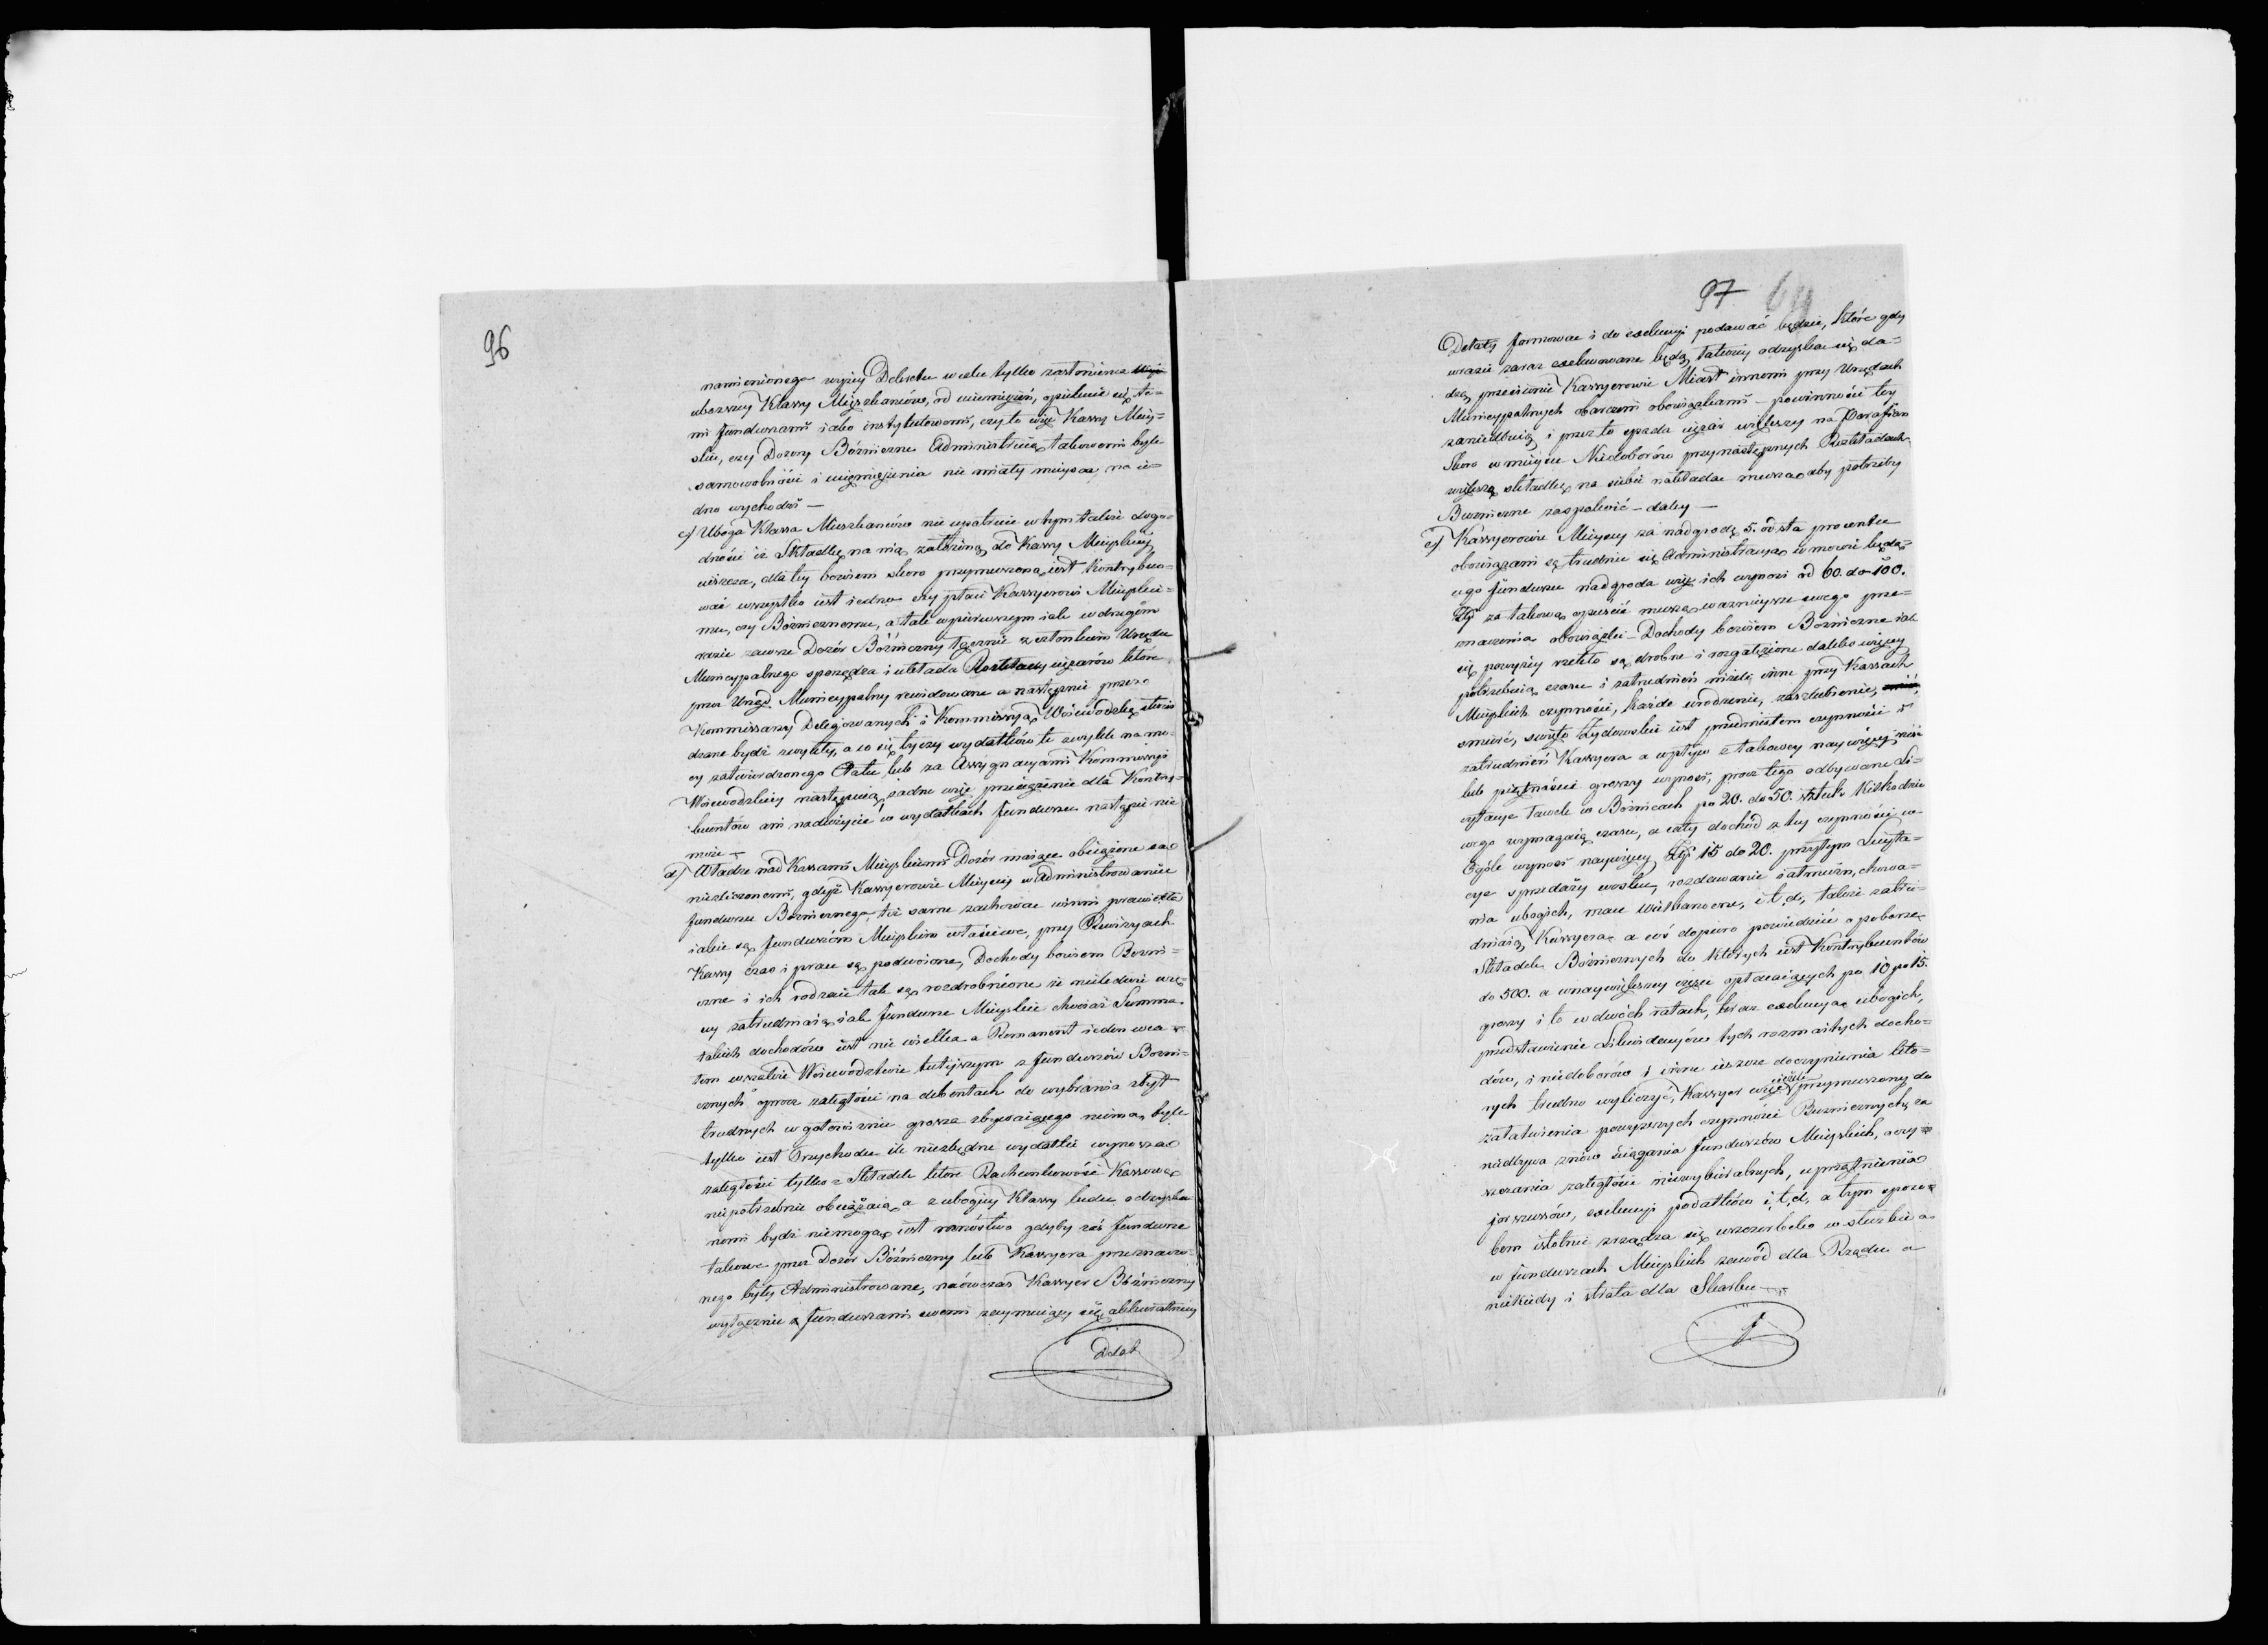 96
namienionego wyżey Dekretu w celu tylko zasłonienia
uboższey Klassy Mieszkańców, od uciemiężeń, opiekuie się te-
mi funduszami iako instytutowemi, czyto więc Kassy Miey-
skie, czy Dozory Bóżniczne Administruią takowemi byle
samowolności i uciemiężenia nie miały mieysca, na ie-
dno wychodzi —
c/ Uboga Klassa Mieszkańców nie upatruie w tym także dogo-
dności iż Składkę na nią założoną do Kassy Mieyskiey
uiszcza, dla tey bowiem skoro przymuszona iest Kontrybuo-
wać wszystko iest iedno czy płaci Kassyerowi Mieyskie-
mu, czy Bóżnicznemu, a tak w pierwszym iak w drugim
razie zawsze Dozór Bóżniczny łącznie z członkiem Urzędu
Municypalnego sporządza i układa Rozkłady ciężarów które
przez Urząd Municypalny rewidowane a następnie przez
Kommissarzy Delegowanych i Kommissyą Woiewodzką stwier
dzane bydź zwykły, a co się tyczy wydatków te zwykle na mo-
cy zatwierdzonego Etatu lub za Assygnacyami Kommissyi
Woiewodzkiey następuią, żadne więc przeciążenie dla Kontry-
buentów ani nadużycie w wydatkach funduszu nastąpić nie
może —
d/ Władze nad Kassami Mieyskiemi Dozór maiące obciążone są
niezliczonemi, gdyż Kassyerowie Mieyscy w Administrowaniu
funduszu Bóżnicznego, też same zachować winni prawidła
iakie są funduszom Mieyskim właściwe, przy Rewizyach
Kassy czas i prace są podwoione, Dochody bowiem Bożni-
czne i ich rodzaie tak są rozdrobnione że nieledwie wię-
cy zatrudniaią iak fundusze Mieyskie chociaż Summa
takich dochodów iest nie wielka a Remanent ieden w ca-
łem wszakże Woiewodztwie tutejszym z funduszów Bożni-
cznych oprocz zaległości na debentach do wybrania zbyt
trudnych w gotowiznie grosza zbywaiącego niema, byle
tylko iest Przychodu ile niezbędne wydatki wynoszą
zaległości tylko z Składek które Rachunkowość Kassową
niepotrzebnie obciążaią, a z ubogiey Klassy ludu odzyska
nemi bydź niemogą, iest mnóstwo gdyby zaś fundusze
takowe przez Dozór Bóżniczny lub Kassyera przeznaczo-
nego były Administrowane, naówczas Kassyer Bóżniczny
wyłącznie z funduszami swemi zaymuiący się akkuratniey
Detaxy
97
69
Detaxy formować i do exekucyi podawać będzie, które gdy
wrazie zaraz exekwowane będą, łatwiey odzyskać się da-
dzą, przeciwnie Kassyerowie Miast innemi przy Urzędach
Municypalnych obarczeni obowiązkami — powinności tey
zaniedbuią, i przez to spada ciężar większy na Parafian
Skoro w mieysce Niedoborów przy następnych Rozkładach
większą składkę na siebie nakładać muszą, aby potrzeby
Bużniczne zaspokoić — daley —
e/ Kassyerowie Mieyscy za nadgrodę 5. od sta procentu
obowiązani są trudnić się Administracyą w mowie będą-
cego funduszu nadgroda więc ich wynosi od 60. do 100.
Złp za takową opuścić muszą, ważnieysze swego prze-
znaczenia obowiązki — Dochody bowiem Bóżniczne iak
się powyżey rzekło są drobne i rozgałęzione daleko więcey
potrzebuią czasu i zatrudnień niżeli inne przy Kassach
Mieyskich czynności, każde urodzenie, zaszlubienie,
śmierć, święto Żydowskie iest przedmiotem czynności i
zatrudnień Kassyera a wpływ z takowey naywięcey
lub piętnaście groszy wynosi, procz tego odbywane Li-
cytacye ławek w Bóżnicach po 20. do 50. sztuk Kilkodnio-
wego wymagaią czasu, a cały dochód z tey czynności w
Ogóle wynosi naywięcey Złp 15 do 20. przytym Licyta-
cye sprzedaży wosku, rozdawanie iałmużn, chowa-
nia ubogich, mace wielkanocne, i t. d, także zatru-
dniaią Kassyera, a coś dopiero powiedzieć o poborze
Składek Bóżnicznych do których iest Kontrybuentów
do 500. a w naywiększey części opłacaiących po 10 po 15.
groszy i to w dwóch ratach, teraz exekucya ubogich,
przedstawienie Likwidacyów tych rozmaitych docho-
dów, i niedoborów i inne ieszcze doczynienia któ-
rych trudno wyliczyć, Kassyer więc przymuszony do
załatwienia powyższych czynności Bużnicznych, za
niedbywa znów ściągania funduszów Mieyskich, oczy-
szczania zaległości niewybieralnych, uprzątnienia
jorszussów, exekucyi podatków i t. d, a tym sposo-
bem istotnie zrządza się uszczerbek w służbie a
w funduszach Mieyskich zawód dla Rządu a
niekiedy i strata dla Skarbu —